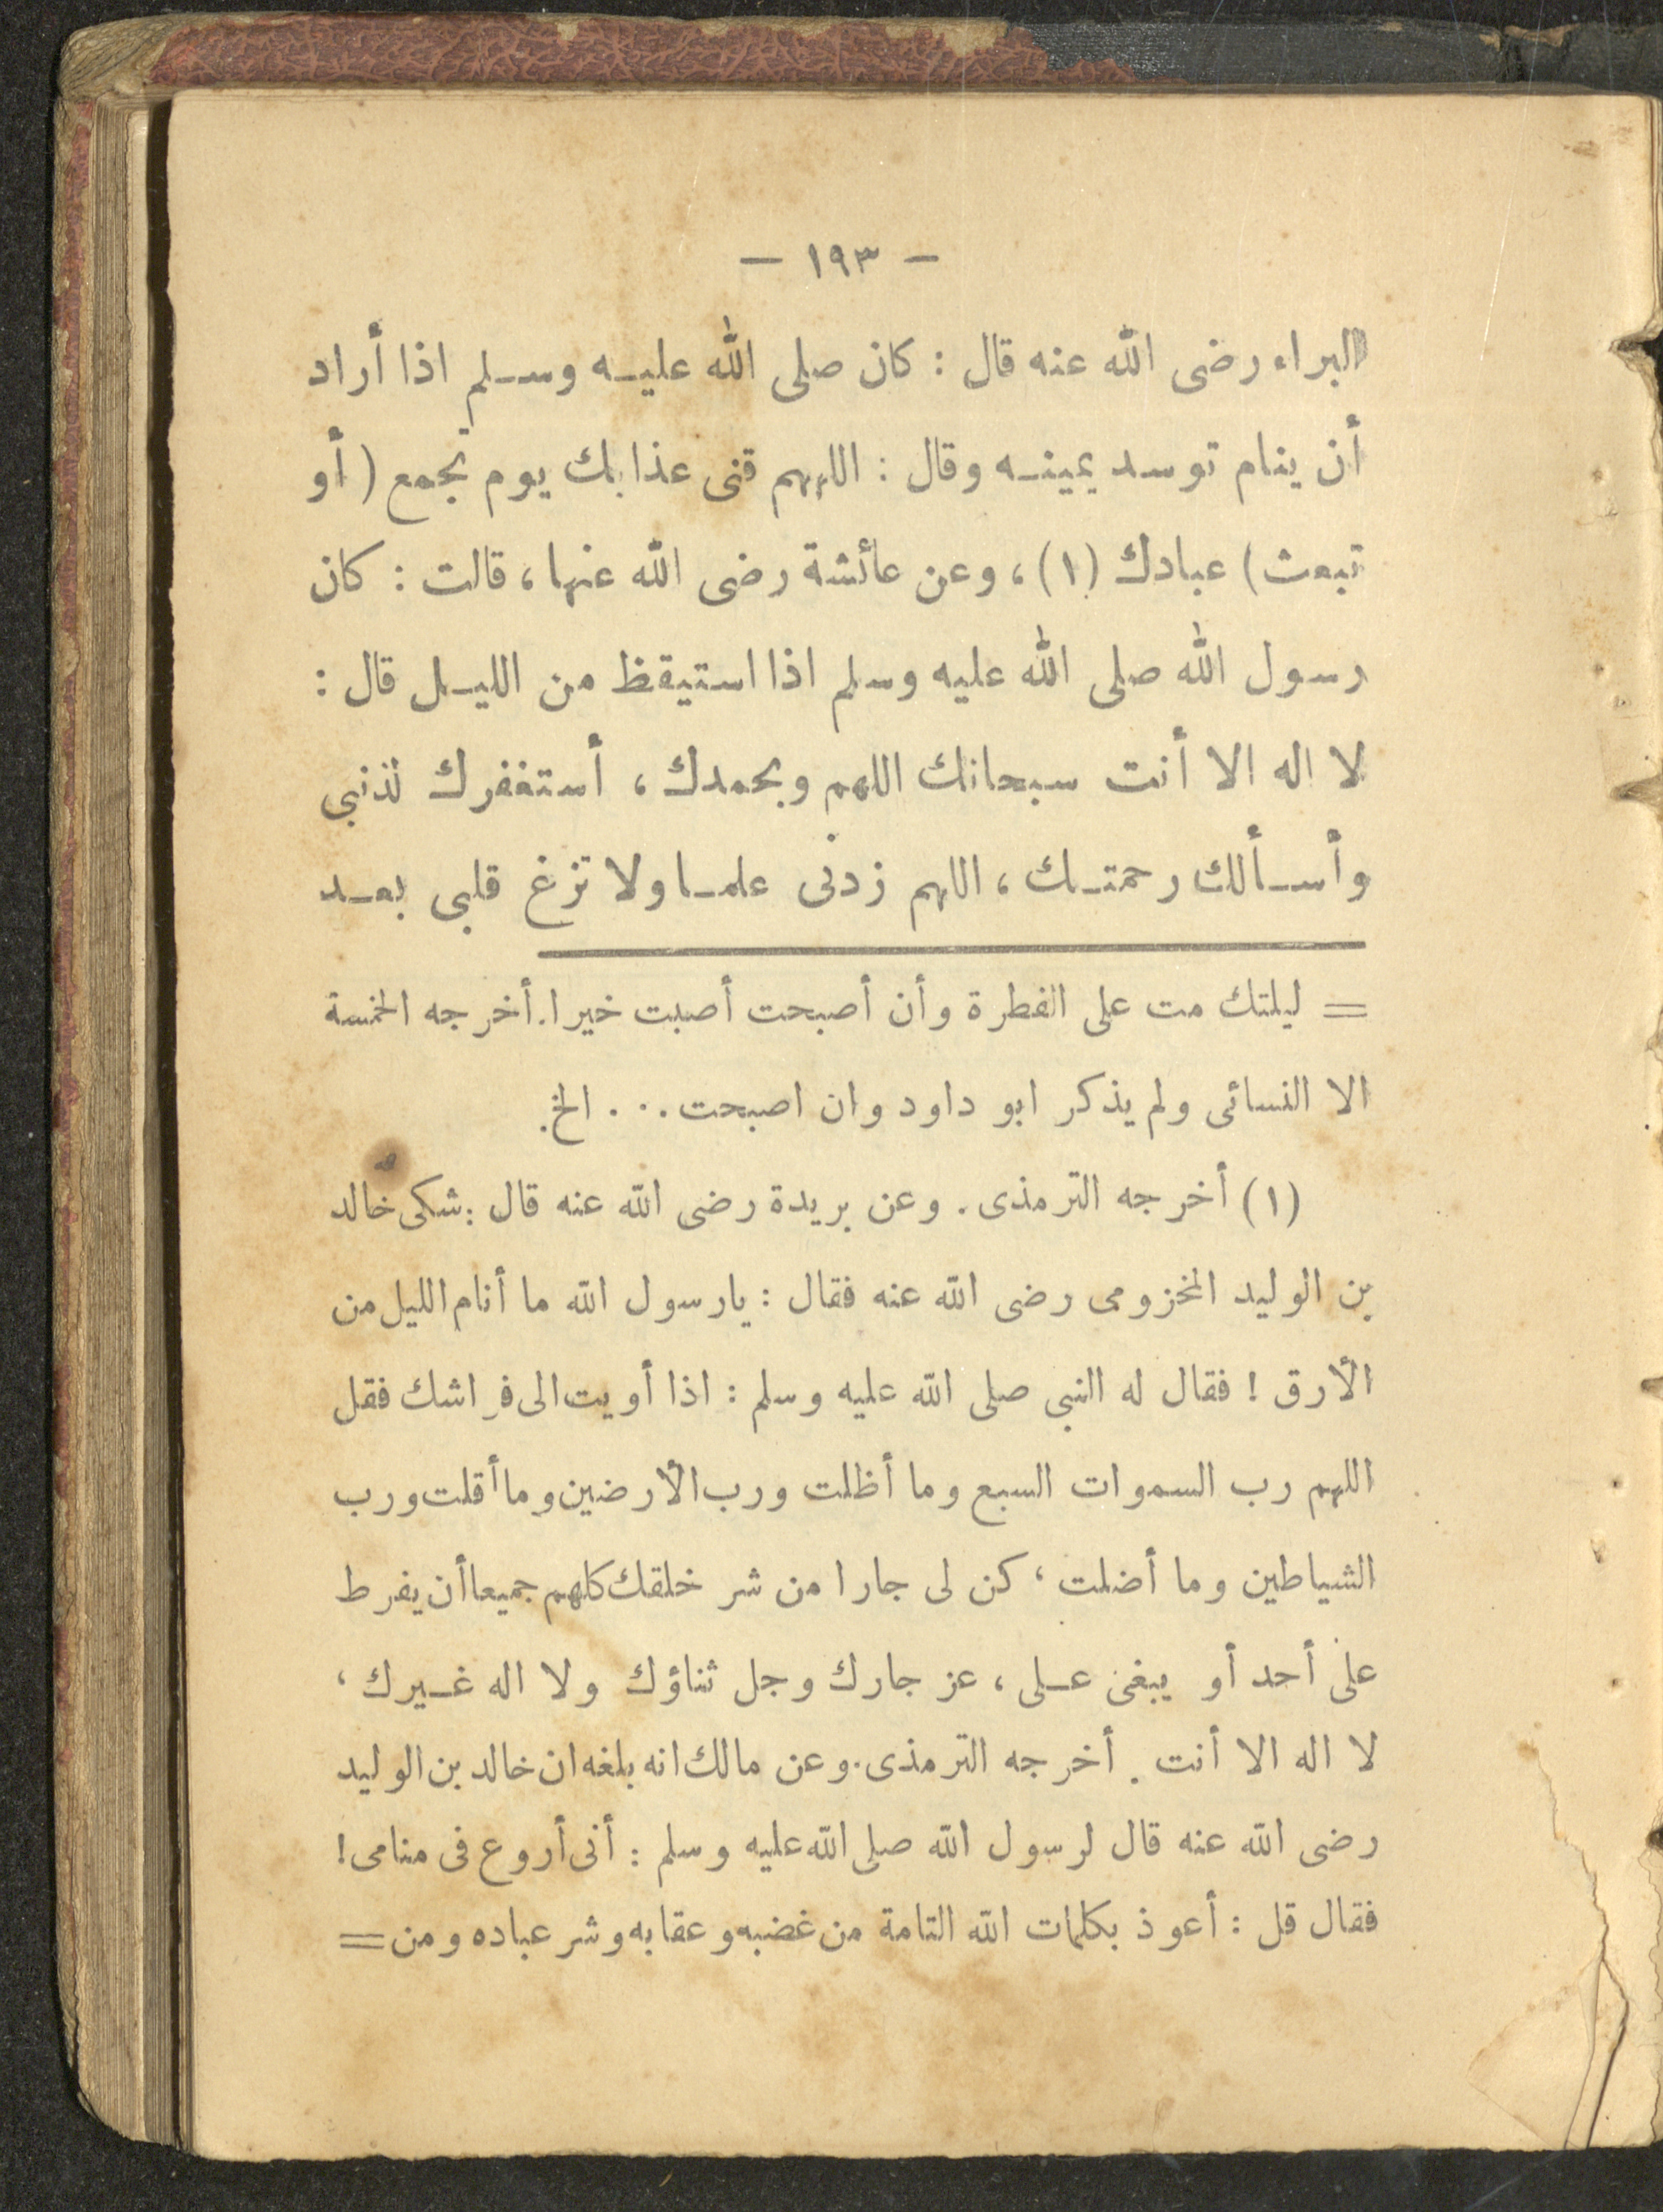 — ١٩٣ —
البراء رضى الله عنه قال : كان صلى الله عليه وسلم اذا أراد
أن ينام توسد يمينه وقال : اللهم قنى عذابك يوم تجمع (أو
تبعث) عبادك (١)، وعن عائشة رضى الله عنها، قالت : كان
رسول الله صلى الله عليه وسلم اذا استيقظ من الليل قال :
لا اله الا أنت سبحانك اللهم وبحمدك، أستغفرك لذنبى
وأسألك رحمتك، اللهم زدنى علما ولا تزغ قلبى بعد
= ليلتك مت على الفطرة وأن أصبحت أصبت خيرا. أخرجه الخمسة
الا النسائى ولم يذكر ابو داود وان اصبحت . . . الخ.
(١) أخرجه الترمذى. وعن بريدة رضى الله عنه قال : شكى خالد
بن الوليد المخزومى رضى الله عنه فقال : يارسول الله ما أنام الليل من
الأرق ! فقال له النبى صلى الله عليه وسلم : اذا أويت الى فراشك فقل
اللهم رب السموات السبع وما أظلت ورب الأرضين وما أقلت ورب
الشياطين وما أضلت، كن لى جارا من شر خلقك كلهم جميعا أن يفرط
على أحد أو يبغى على، عز جارك وجل ثناؤك ولا اله غيرك،
لا اله الا أنت. أخرجه الترمذى. وعن مالك انه بلغه ان خالد بن الوليد
رضى الله عنه قال لرسول الله صلى الله عليه وسلم : أنى أروع فى منامى!
فقال قل : أعوذ بكلمات الله التامة من غضبه وعقابه وشر عباده ومن =